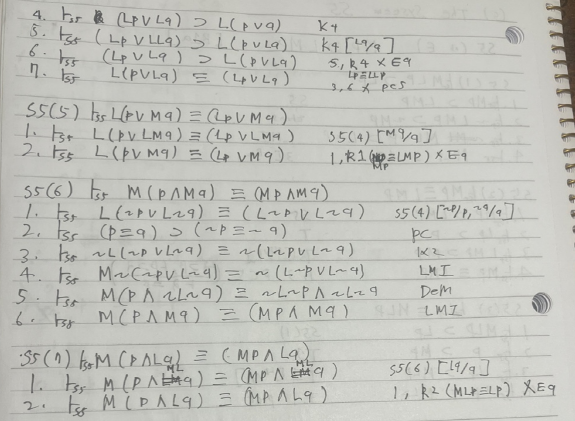 4. ⊢S5 (Lp∨Lq) ⊃ L(p∨q) K4
5. ⊢S5 (Lp∨LLq) ⊃ L(p∨Lq) K4[Lq/q]
6. ⊢S5 (Lp∨Lq) ⊃ L(p∨Lq) 5, R4 × Eq
Lp≡LLp
7. ⊢S5 L(p∨Lq) ≡ (Lp∨Lq) 3,6 × PCS
S5(5) ⊢S5 L(p∨Mq) ≡ (Lp∨Mq)
1. ⊢S5 L(p∨LMq) ≡ (Lp∨LMq) S5(4)[Mq/q]
2. ⊢S5 L(p∨Mq) ≡ (Lp∨Mq) 1, R1(Mp≡LMP) × Eq
S5(6) ⊢S5 M(p∧Mq) ≡ (Mp∧Mq)
1. ⊢S5 L(~p∨L~q) ≡ (L~p∨L~q) S5(4)[~p/p, ~q/q]
2. ⊢S5 (p≡q) ⊃ (~p≡~q) PC
3. ⊢S5 ~L(~p∨L~q) ≡ ~(L~p∨L~q) 1×2
4. ⊢S5 M~(~p∨L~q) ≡ ~(L~p∨L~q) LMI
5. ⊢S5 M(p∧~L~q) ≡ ~L~p∧~L~q DeM
6. ⊢S5 M(p∧Mq) ≡ (Mp∧Mq) LMI
S5(7) ⊢S5 M(p∧Lq) ≡ (Mp∧Lq)
1. ⊢S5 M(p∧MLq) ≡ (Mp∧MLq) S5(6)[Lq/q]
2. ⊢S5 M(p∧Lq) ≡ (Mp∧Lq) 1, R2(MLp≡Lp) × Eq